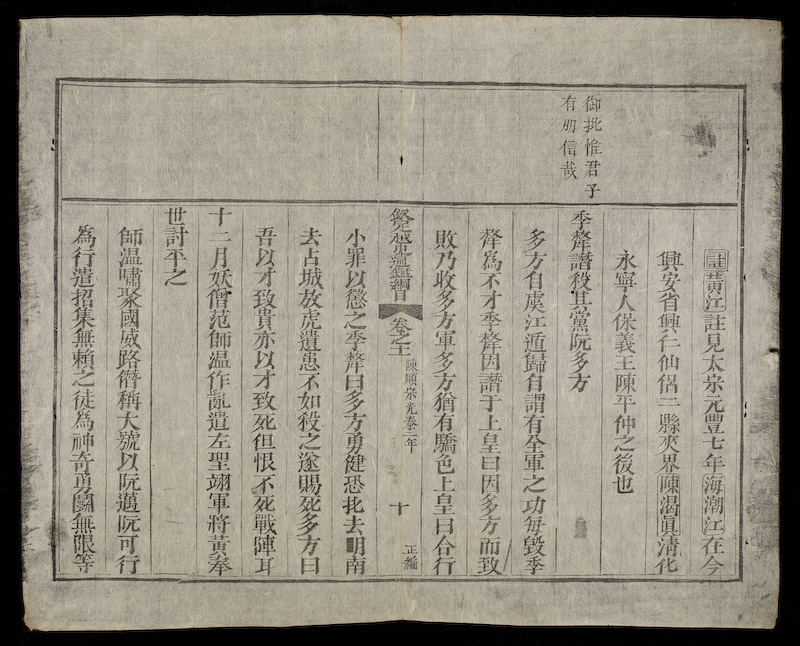 御批惟君子
有朋信哉
註黃江註見太宗元豐七年海潮江在今
興安省興仁仙侶二縣夾界陳渴眞清化
永寧人保義王陳平仲之後也
季犛譖殺其黨阮多方
多方自虞江遁歸自謂有全軍之功每毀季
犛爲不才季犛因譖于上皇曰因多方而致
敗乃收多方軍多方猶有驕色上皇曰合行
欽定越史通鑑綱目 卷之十一 陳順宗光泰二年 十 正編
小罪以懲之季犛曰多方勇健恐北去明南
去占城放虎遺患不如殺之遂賜死多方曰
吾以才致貴亦以才致死但恨不死戰陣耳
十二月妖僧范師温作亂遣左聖翊軍將黃奉
世討平之
師温嘯聚國威路僭稱大號以阮邁阮可行
爲行遣招集無賴之徒爲神奇勇鬭無限等